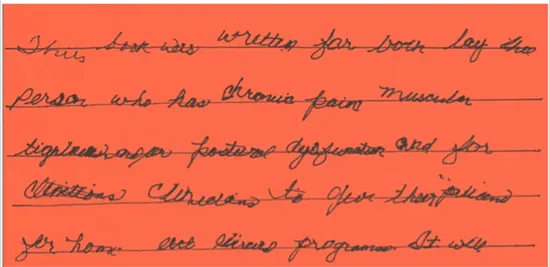 This book was written for both lay the
person who has chronic pain muscular
postural dysfunction and for
Clinicians to give their
for home programs. It will